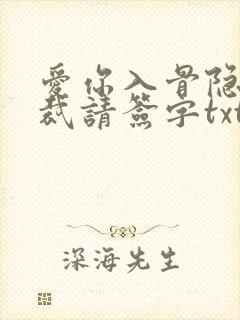 愛你入骨隐
裁請簽字txt
深海先生